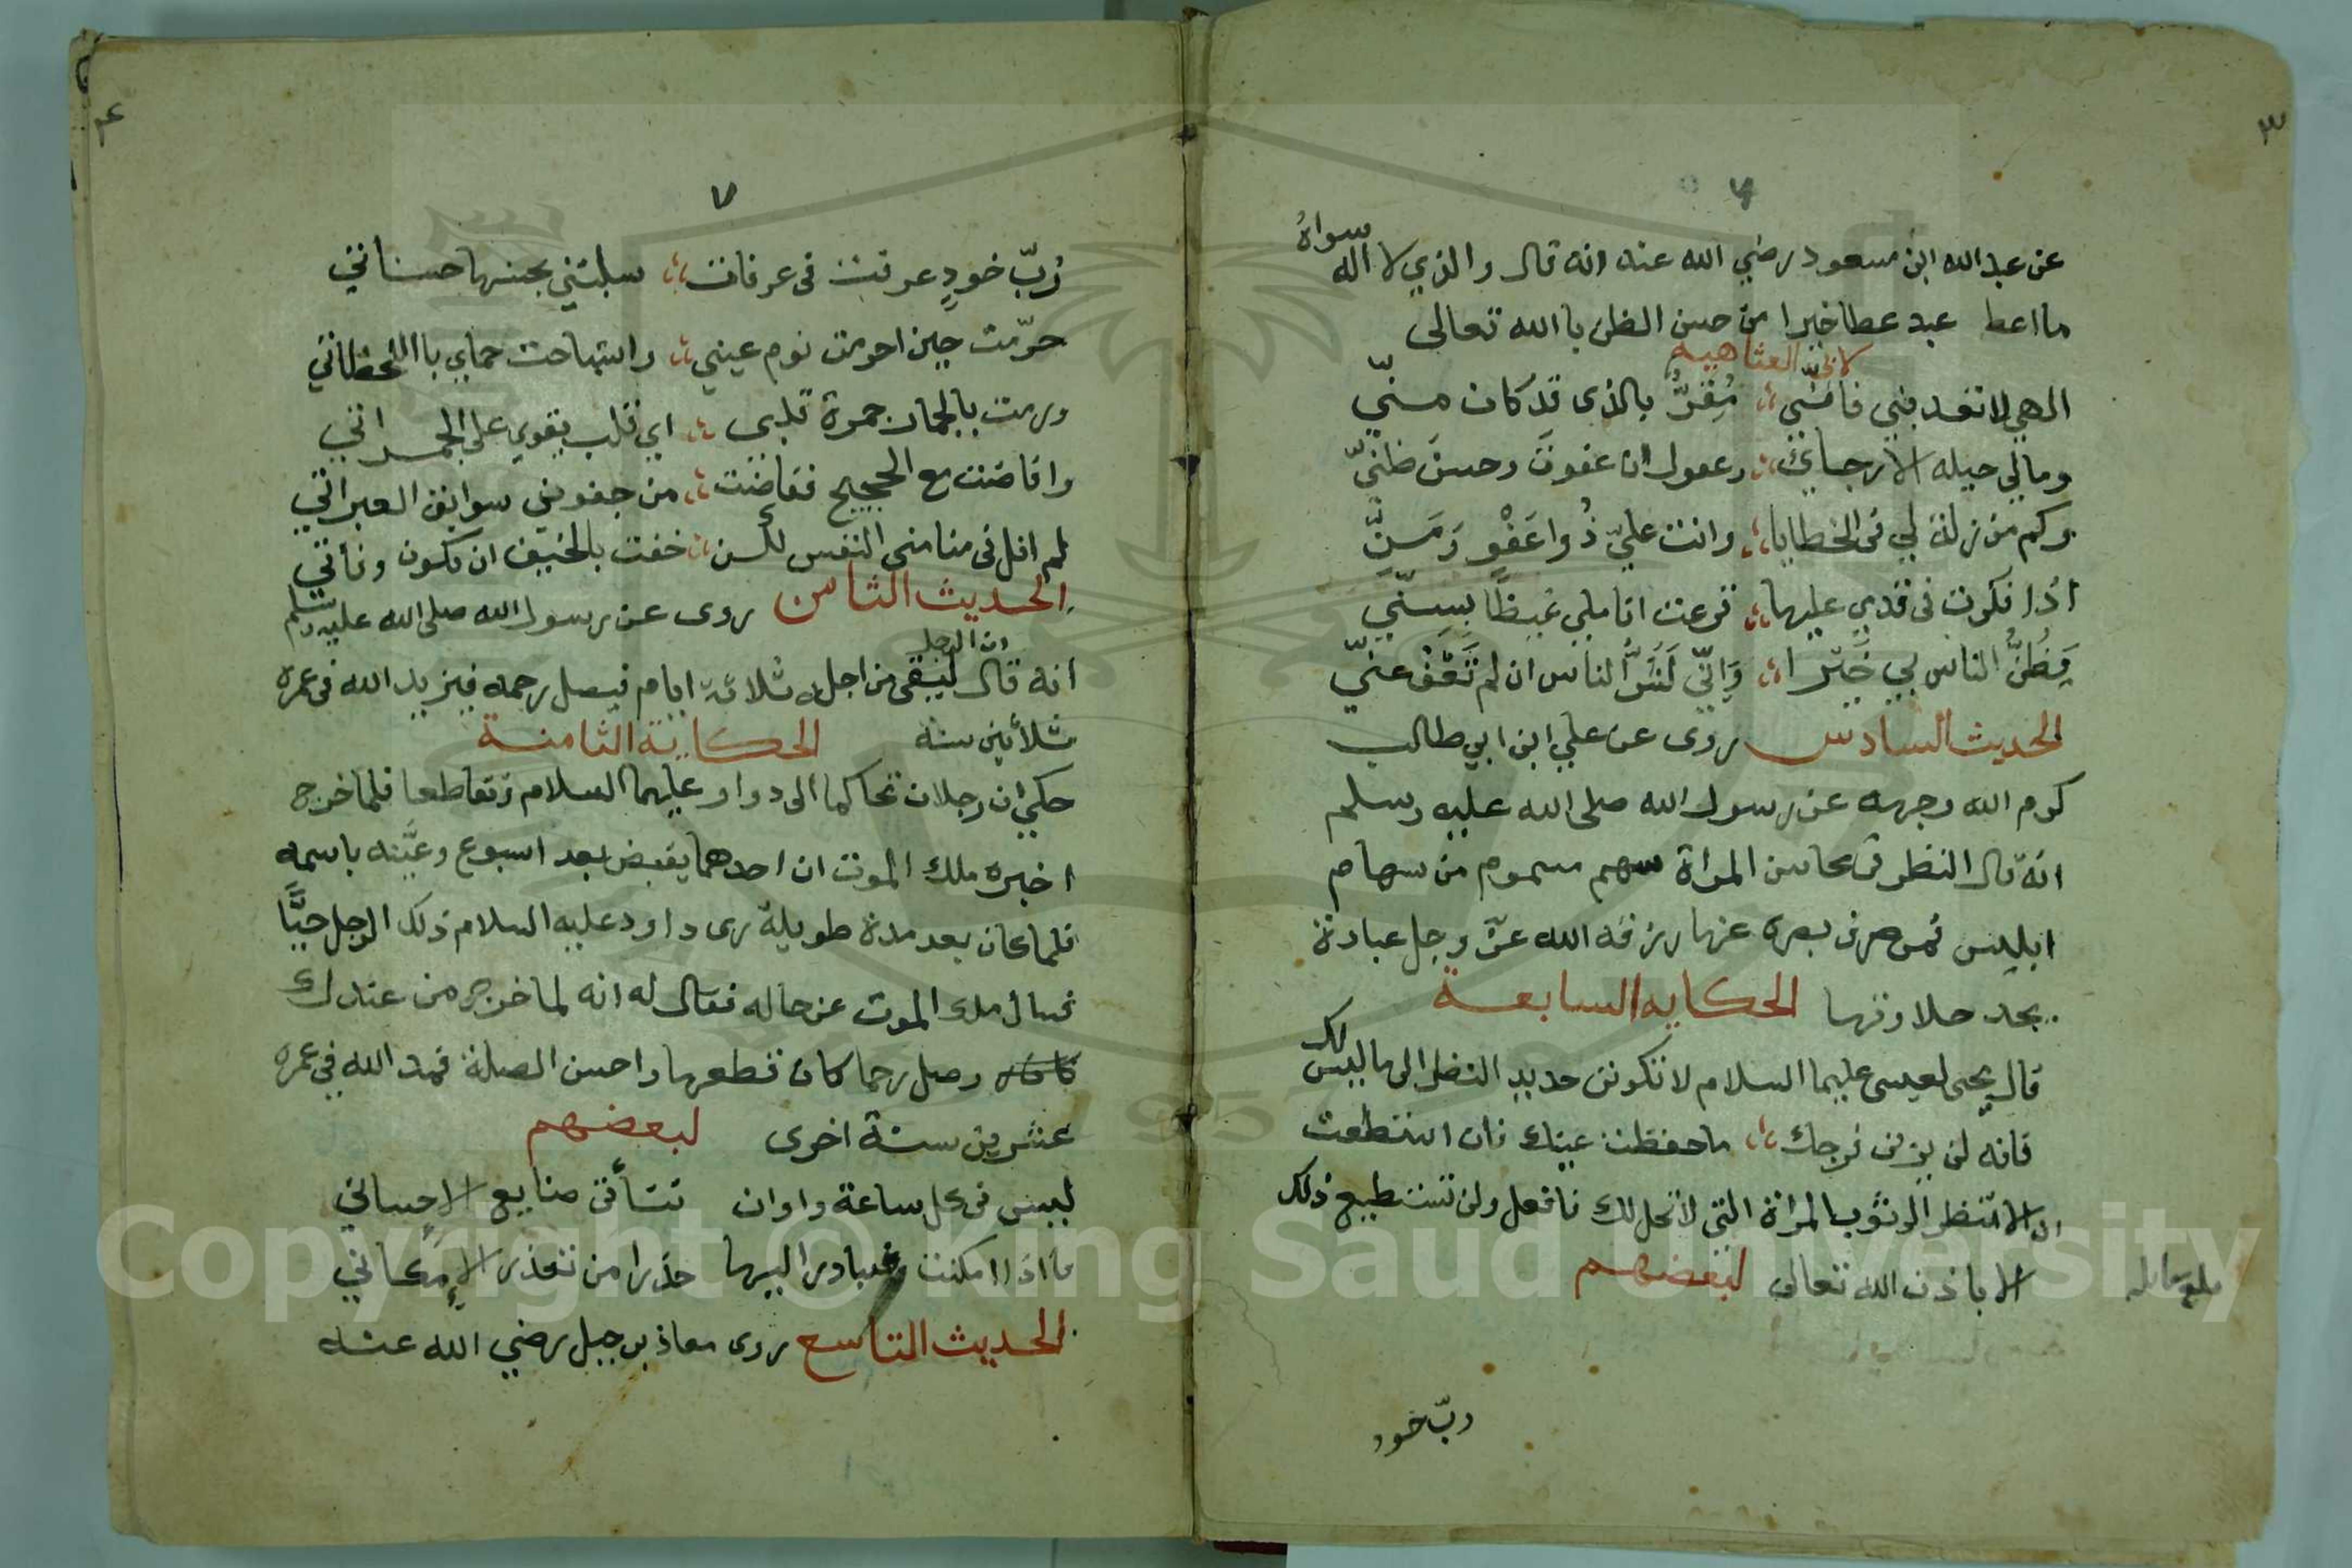 ٣
٦
عن عبد الله ابن مسعود رضي الله عنه انه قال والذي لا اله سواه
ما اعط عبد عطا خيرا من حسن الظن باالله تعالى
لابي العثاهيه
الهي لا تعذبني فانني مُقِرٌّ بالذى قد كان منّي
ومالي حيله الا رجائي وعفوك ان عفوت وحسن ظنيّ
وكم من زلة لي فى الخطايا وانت عليّ ذُوا عَفْوٍ وَمَنِّ
اذا فكرت فى قدمي عليها قرعت اناملي غيظًا بسنّي
يَظُنُّ الناس بي خَيْرا وَاِنّي لَشَرُّ الناس ان لم تَعْفُ عنّي
الحديث السادس روى عن علي ابن ابي طالب
كرم الله وجهه عن رسول الله صلى الله عليه وسلم
انه قال النظر فى محاسن المراة سهم مسموم من سهام
ابليس فمن صرف بصره عنها رزقه الله عزّ وجل عبادة
يجد حلاوتها الحكايه السابعة
قال يحيى لعيسى عليهما السلام لا تكونن حديد النظر الى ما ليس لك
فانه لن يزني فرجك ما حفظت عينك فان استطعت
ان لا تنظر الى ثوب المراة التي لا تحل لك فافعل ولن تستطيع ذلك
الا باذن الله تعالى لبعضهم
بلغ مقابله
ربّ خود
٤
٧
رُبّ خودٍ عرفت فى عرفات سلبتني بحسنها حسناتي
حرّمت حين احرمت نوم عيني واستباحت حماي باللحظاتي
ورمت بالجمار جمرة قلبي اي قلب يقوي على الجمراتي
وافاضت مع الحجيج ففاضت من جفوني سوابق العبراتي
لم انل فى منا منى النفس لكن خفت بالخيف ان تكون وفاتي
الحديث الثامن روى عن رسول الله صلى الله عليه وسلم
انه قال ان الرجل ليبقى من اجله ثلاثة ايام فيصل رحمه فيزيد الله فى عمره
ثلاثين سنه الحكاية الثامنة
حكي ان رجلان تحاكما الى داود عليهما السلام وتقاطعا فلما خرج
اخبره ملك الموت ان احدهما يقبض بعد اسبوع وعَيَّنه باسمه
فلما كان بعد مدة طويلة رى داود عليه السلام ذلك الرجل حيًّا
فسال ملك الموت عن حاله فقال له انه لما خرج من عندك
وصل رحما كان قطعها واحسن الصلة فمد الله في عمره
عشرين سنة اخرى لبعضهم
ليس فى كل ساعة واوان تتأتى صنايع الاحساني
فاذا امكنت فبادر اليها حذرا من تعذر الاِمكاني
الحديث التاسع روى معاذ بن جبل رضي الله عنه
Copyright © King Saud University
1957